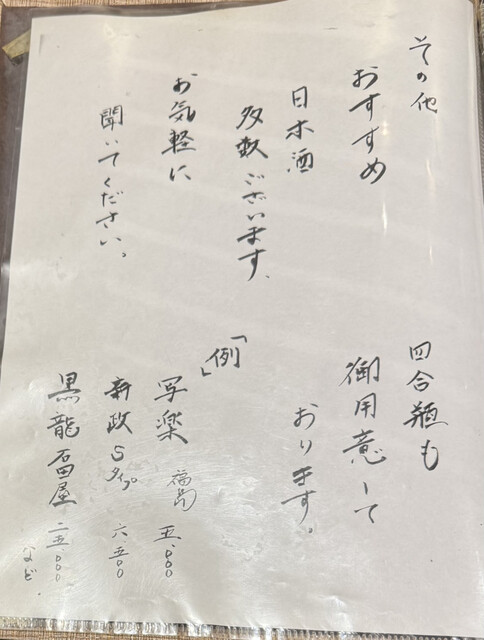 その他
おすすめ
日本酒
多数ございます、
お気軽に
聞いてください。
四合瓶も
御用意して
おります。
「例」
写楽 福島 五、〇〇〇
新政Sタイプ 六五〇〇
黒龍石田屋 二五、〇〇〇
など、